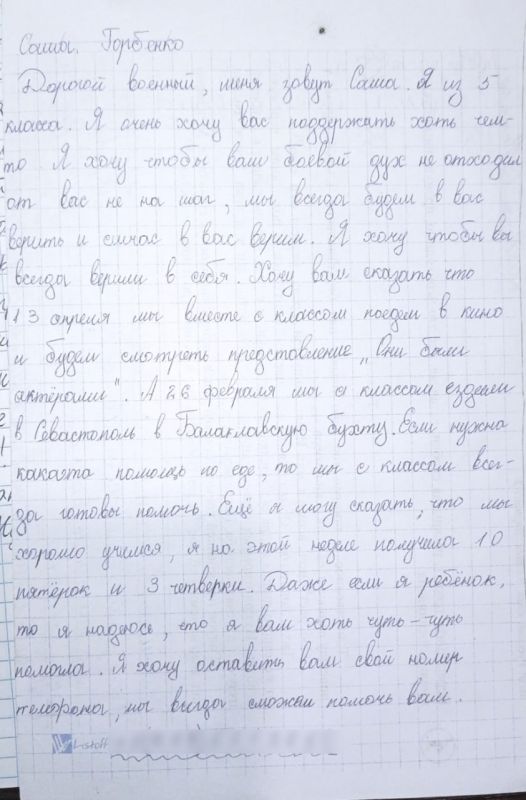 Саша. Горбенко
Дорогой военный, меня зовут Саша. Я из 5
класса. Я очень хочу вас поддержать хоть чем-
то Я хочу чтобы ваш боевой дух не отходил
от вас не на шаг, мы всегда будем в вас
верить и сичас в вас верим. Я хочу чтобы вы
всегда верили в себя. Хочу вам сказать что
13 апреля мы вместе с классом поедем в кино
и будем смотреть предстовление „Они были
актёрами". А 26 февраля мы с классом ездели
в Севастополь в Балаклавскую бухту. Если нужна
какаята помощь по еде, то мы с классом всег-
да готовы помочь. Ещё я могу сказать, что мы
хорошо учимся, я на этой неделе получила 10
пятёрок и 3 четверки. Даже если я ребёнок,
то я надеюсь, что я вам хоть чуть-чуть
помогла. Я хочу оставить вам свой номер
телефона, мы всегда сможем помочь вам.
Listoff